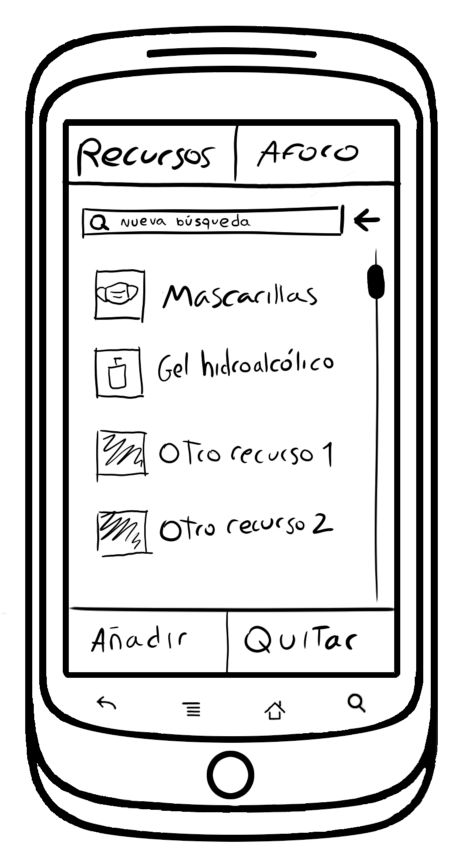 Recursos Aforo
Nueva búsqueda
Mascarillas
Gel hidroalcólico
Otro recurso 1
Otro recurso 2
Añadir Quitar